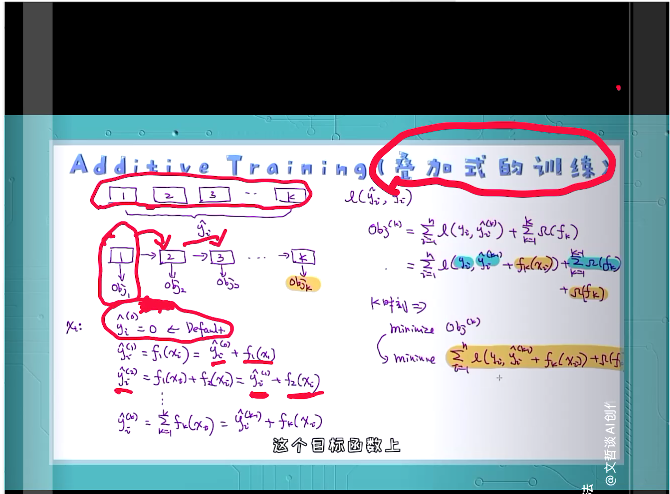 Additive Training(叠加式的训练)
1 2 3 ... K
ŷᵢ
1 → 2 → 3 ... → K
obj₁ obj₂ obj₃ objₖ
xᵢ:
ŷᵢ⁽⁰⁾ = 0 ← Default
ŷᵢ⁽¹⁾ = f₁(xᵢ) = ŷᵢ⁽⁰⁾ + f₁(xᵢ)
ŷᵢ⁽²⁾ = f₁(xᵢ) + f₂(xᵢ) = ŷᵢ⁽¹⁾ + f₂(xᵢ)
⋮
ŷᵢ⁽ᵏ⁾ = Σₖ₌₁ᴷ fₖ(xᵢ) = ŷᵢ⁽ᵏ⁻¹⁾ + fₖ(xᵢ)
l(ŷᵢ, yᵢ)
Obj⁽ᵏ⁾ = Σᵢ₌₁ⁿ l(yᵢ, ŷᵢ⁽ᵏ⁾) + Σₖ₌₁ᴷ Ω(fₖ)
= Σᵢ₌₁ⁿ l(yᵢ, ŷᵢ⁽ᵏ⁻¹⁾ + fₖ(xᵢ)) + Σₖ₌₁ᴷ⁻¹ Ω(fₖ)
+ Ω(fₖ)
K时刻 ⇒
minimize Obj⁽ᵏ⁾
minimize Σᵢ₌₁ⁿ l(yᵢ, ŷᵢ⁽ᵏ⁻¹⁾ + fₖ(xᵢ)) + Ω(f
这个目标函数上
@文哲谈AI创作
法